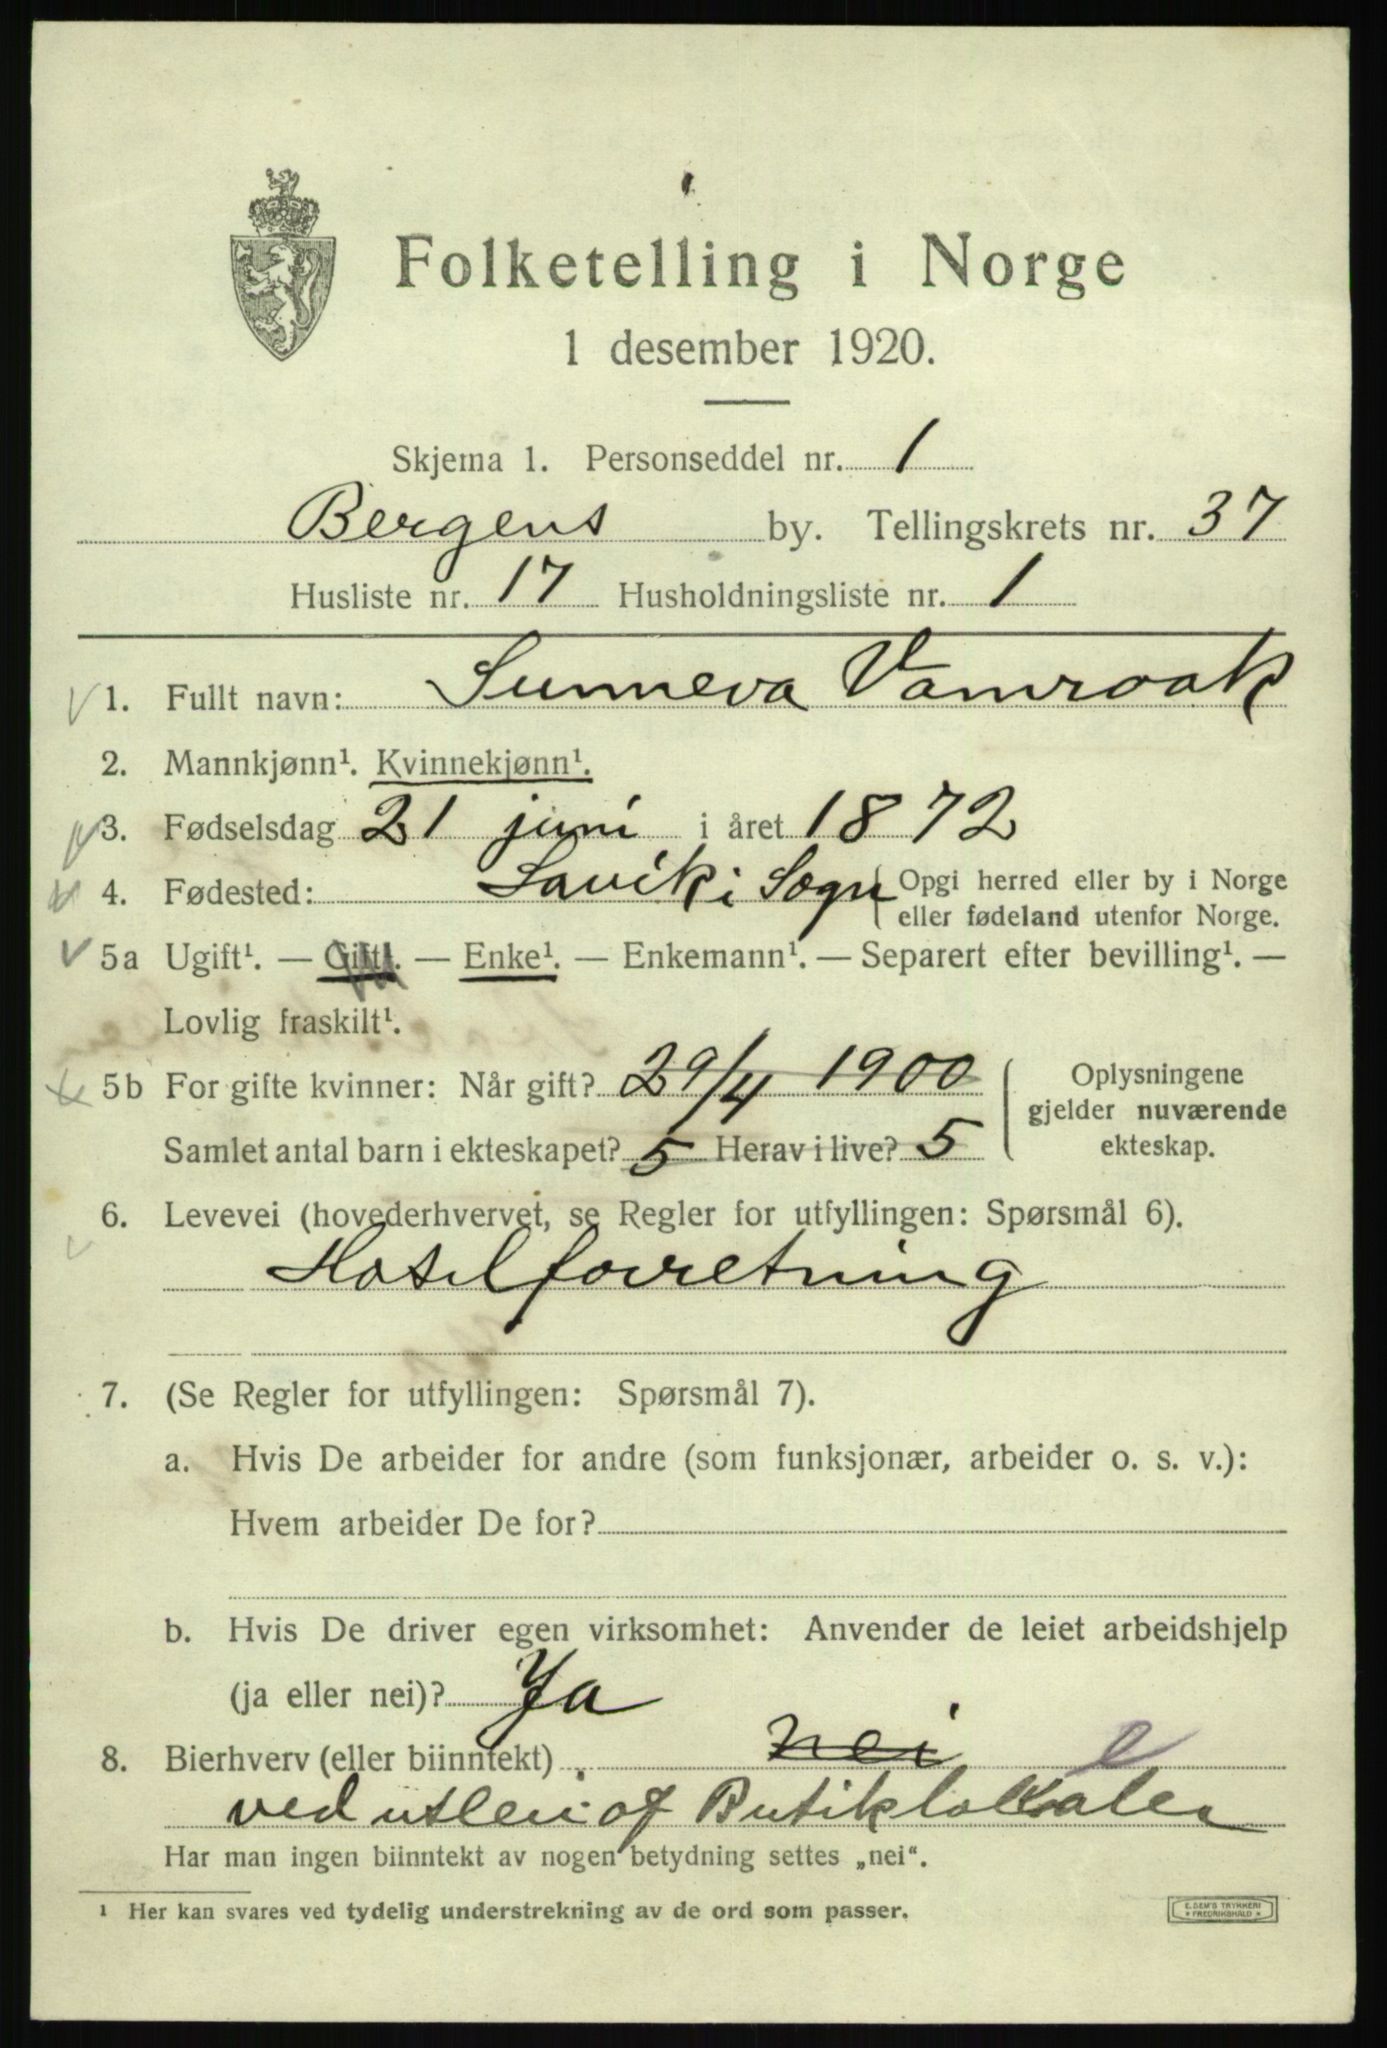 Folketelling i Norge
1 desember 1920.
Skjema 1. Personseddel nr. 1
Bergens by. Tellingskrets nr. 37
Husliste nr. 17 Husholdningsliste nr. 1
1. Fullt navn: Sunneva Vamraak
2. Mannkjønn¹. Kvinnekjønn¹.
3. Fødselsdag 21 juni i året 1872
4. Fødested: Lavik i Sogn (Opgi herred eller by i Norge
eller fødeland utenfor Norge.
5a Ugift¹. — Gift¹. — Enke¹. — Enkemann¹. — Separert efter bevilling¹. —
Lovlig fraskilt¹.
5b For gifte kvinner: Når gift? 29/4 1900
Samlet antal barn i ekteskapet? 5 Herav i live? 5
Oplysningene
gjelder nuværende
ekteskap.
6. Levevei (hovederhvervet, se Regler for utfyllingen: Spørsmål 6).
Hotelforretning
7. (Se Regler for utfyllingen: Spørsmål 7).
a. Hvis De arbeider for andre (som funksjonær, arbeider o. s. v.):
Hvem arbeider De for?
b. Hvis De driver egen virksomhet: Anvender de leiet arbeidshjelp
(ja eller nei)? Ja
8. Bierhverv (eller biinntekt) nei e
ved utleie af Butiklokaler
Har man ingen biinntekt av nogen betydning settes „nei“.
¹ Her kan svares ved tydelig understrekning av de ord som passer.
E. SEM'S TRYKKERI
* FREDRIKSHALD *